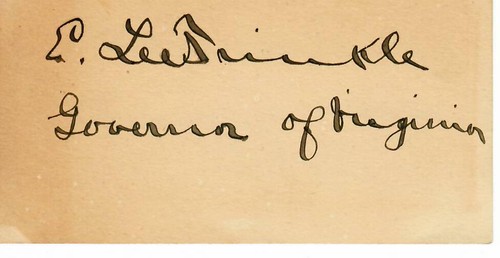 E. Lee Trinkle
Governor of Virginia